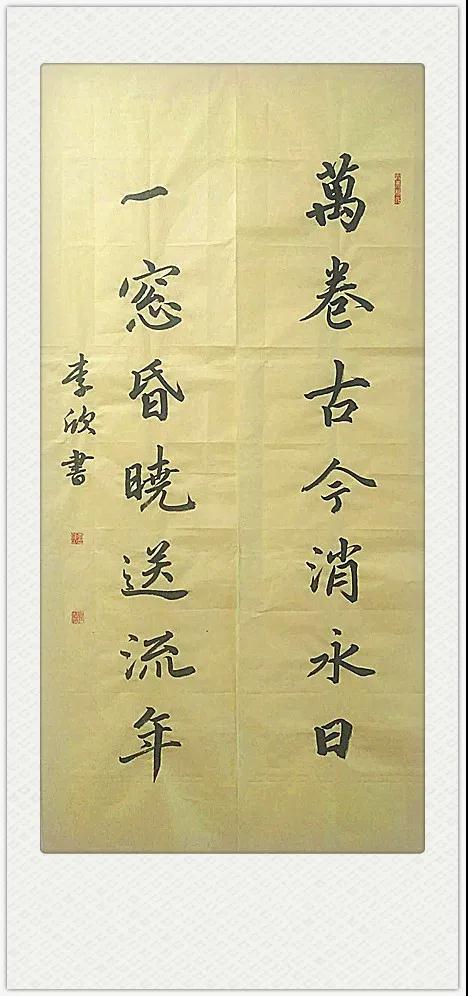 萬卷古今消永日
一窓昏曉送流年
李欣書